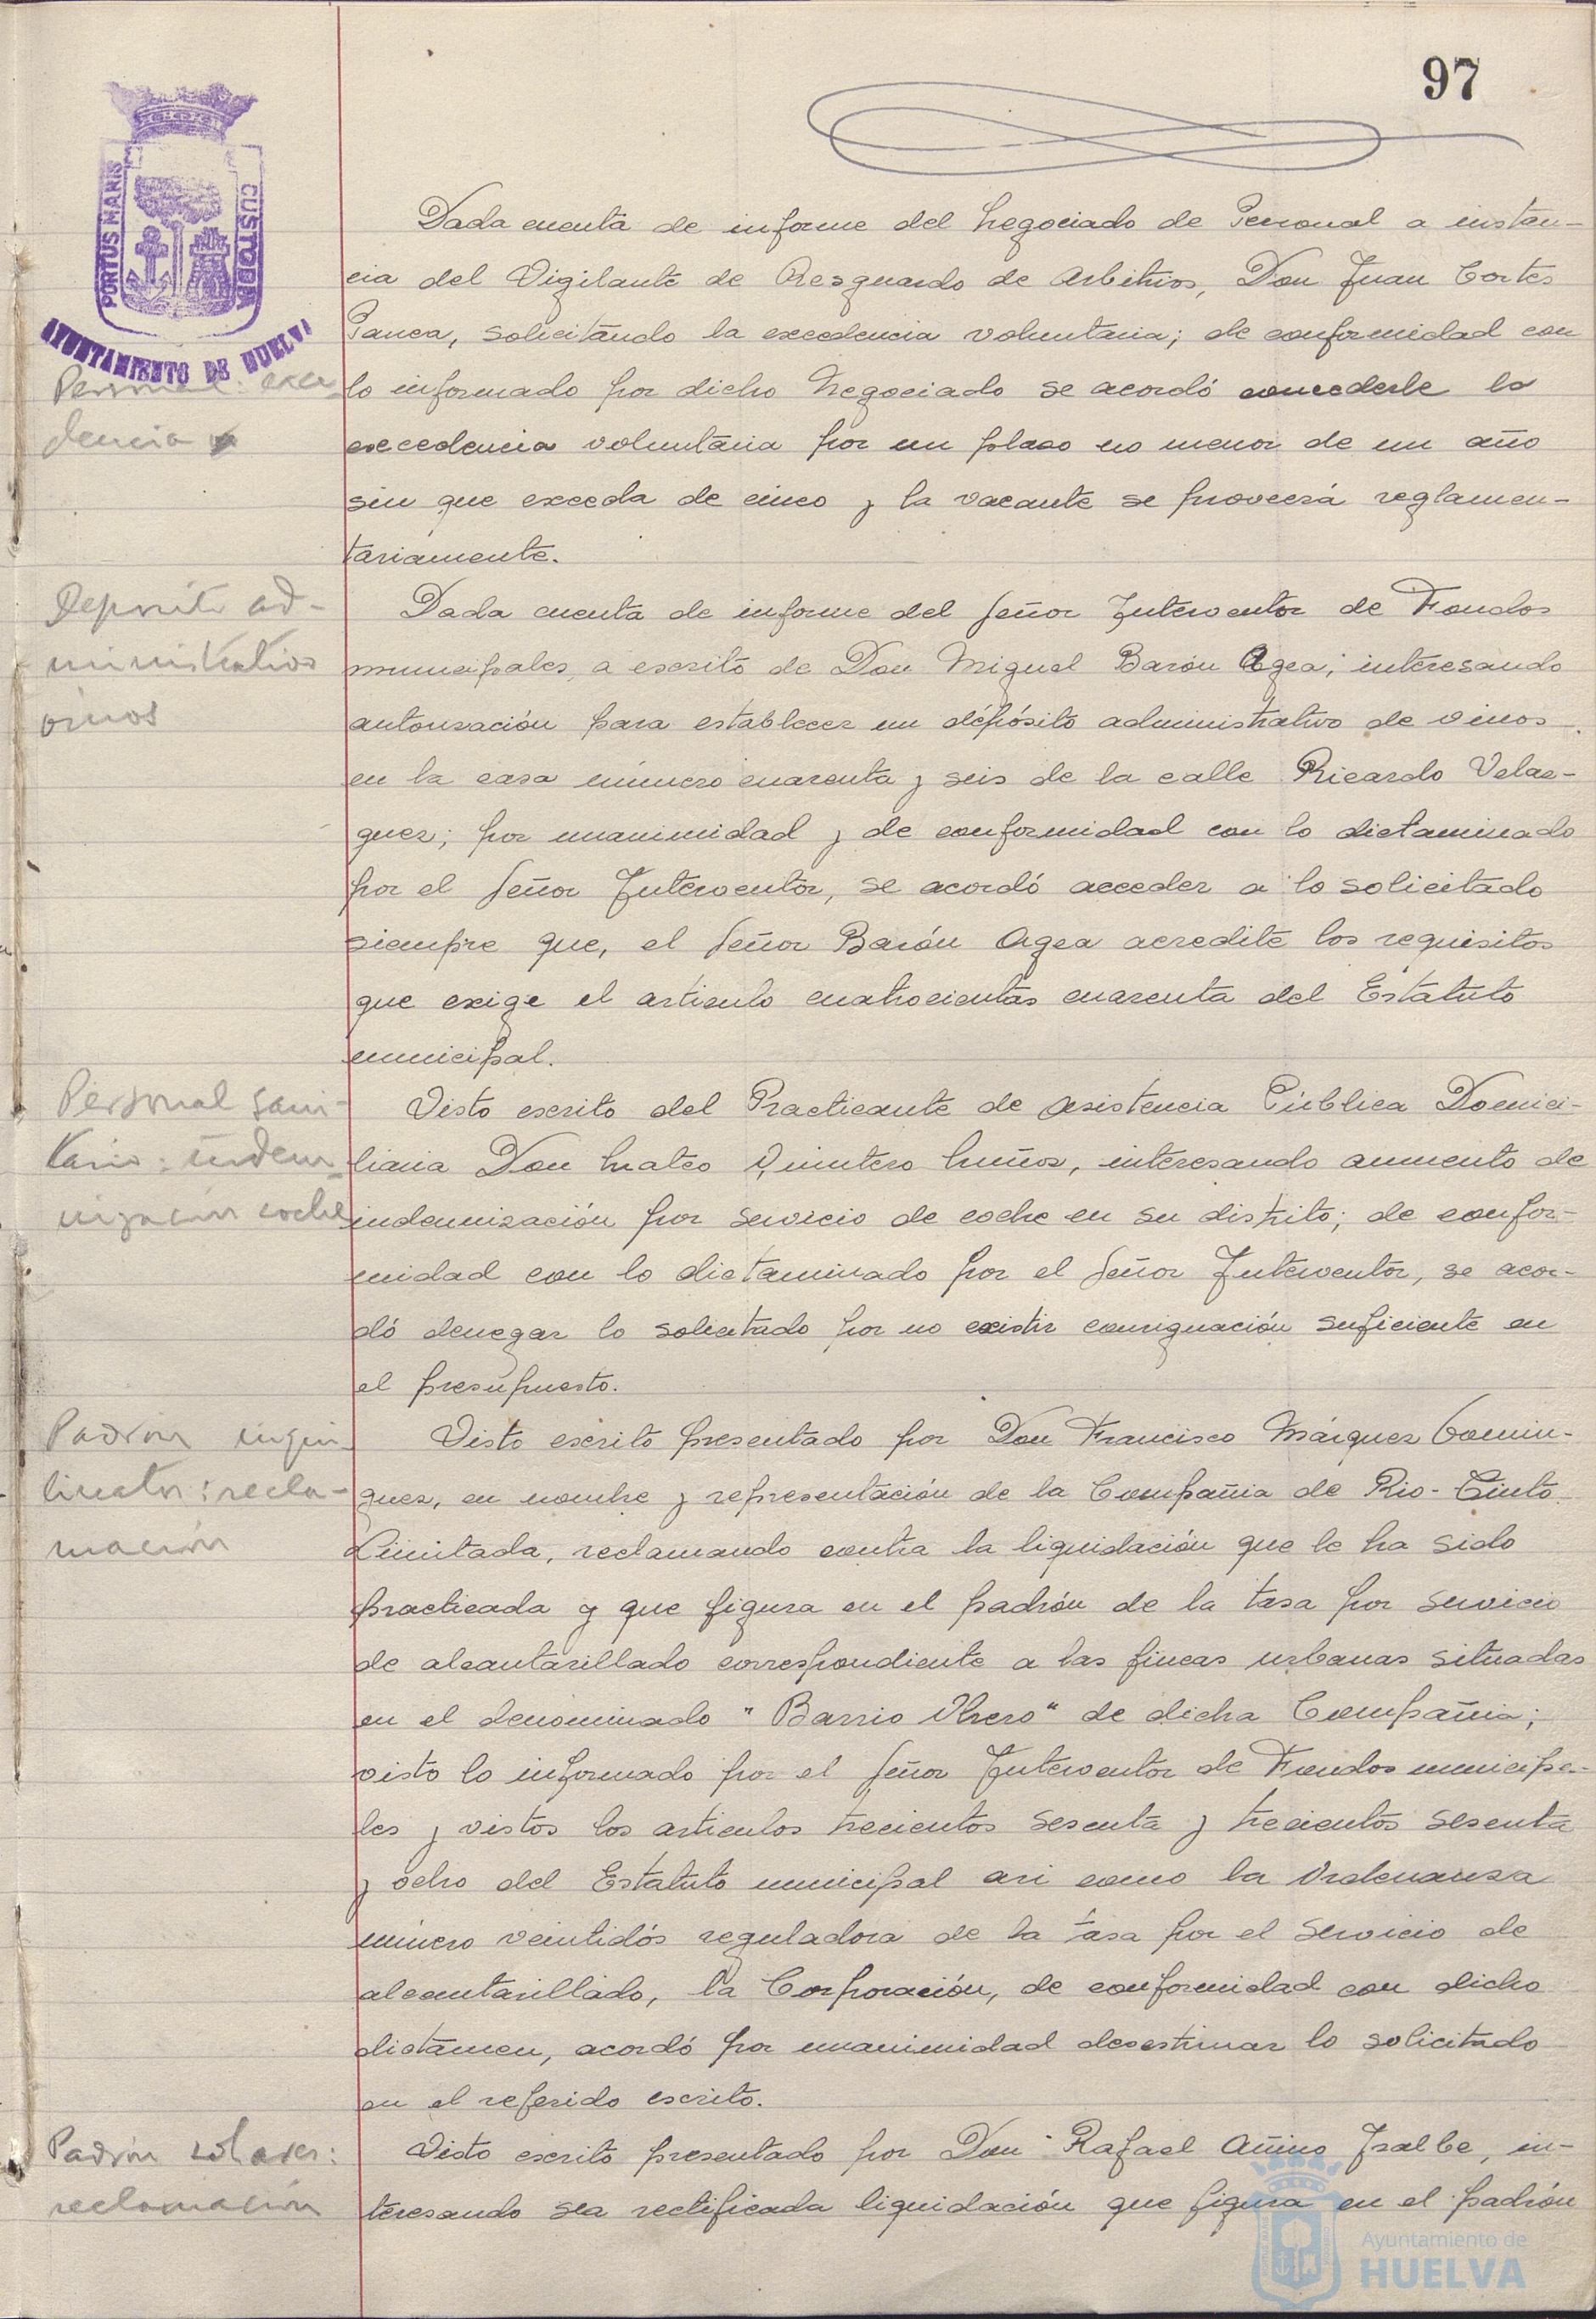 97
PORTUS MARIS CUSTODIA
AYUNTAMIENTO DE HUELVA
Dada cuenta de informe del Negociado de Personal a instan-
cia del Vigilante de Resguardo de Arbitrios, Don Juan Cortes
Ponca, solicitando la excedencia voluntaria; de conformidad con
Personal: exce
lo informado por dicho Negociado se acordó concederle la
dencia
excedencia voluntaria por un plaso no menor de un año
sin que exceda de cinco y la vacante se proveerá reglamen-
tariamente.
Deposito ad-
Dada cuenta de informe del Señor Interventor de Fondos
ministrativos
municipales, a escrito de Don Miguel Barón Agea; interesando
vinos
autorisación para establecer un depósito administrativo de vinos
en la casa número cuarenta y seis de la calle Ricardo Velas-
quez; por unanimidad y de conformidad con lo dictaminado
por el Señor Interventor, se acordó acceder a lo solicitado
siempre que, el Señor Barón Agea acredite los requisitos
que exige el articulo cuatrocientas cuarenta del Estatuto
municipal.
Personal sani-
Visto escrito del Practicante de Asistencia Pública Domici-
tario: indem
liaria Don Mateo Quintero Muñoz, interesando aumento de
nización coche
indemnisación por servicio de coche en su distrito; de confor-
midad con lo dictaminado por el Señor Interventor, se acor-
dó denegar lo solicitado por no existir consignación suficiente en
el presupuesto.
Padrón inqui
Visto escrito presentado por Don Francisco Márquez Domin-
linatos: recla-
guez, en nombre y representación de la Compañia de Rio-Tinto
mación
Limitada, reclamando contra la liquidación que le ha sido
practicada y que figura en el padrón de la tasa por servicio
de alcantarillado correspondiente a las fincas urbanas situadas
en el denominado "Barrio Obrero" de dicha Compañia;
visto lo informado por el Señor Interventor de Fondos municipa-
les y vistos los articulos trecientos sesenta y trecientos sesenta
y ocho del Estatuto municipal asi como la Ordenanza
número veintidós reguladora de la tasa por el servicio de
alcantarillado, la Corporación, de conformidad con dicho
dictámen, acordó por unanimidad desestimar lo solicitado
en el referido escrito.
Padrón solares:
Visto escrito presentado por Don Rafael Añino Ysalbe, in-
reclamación
teresando sea rectificada liquidación que figura en el padrón
Ayuntamiento de
HUELVA